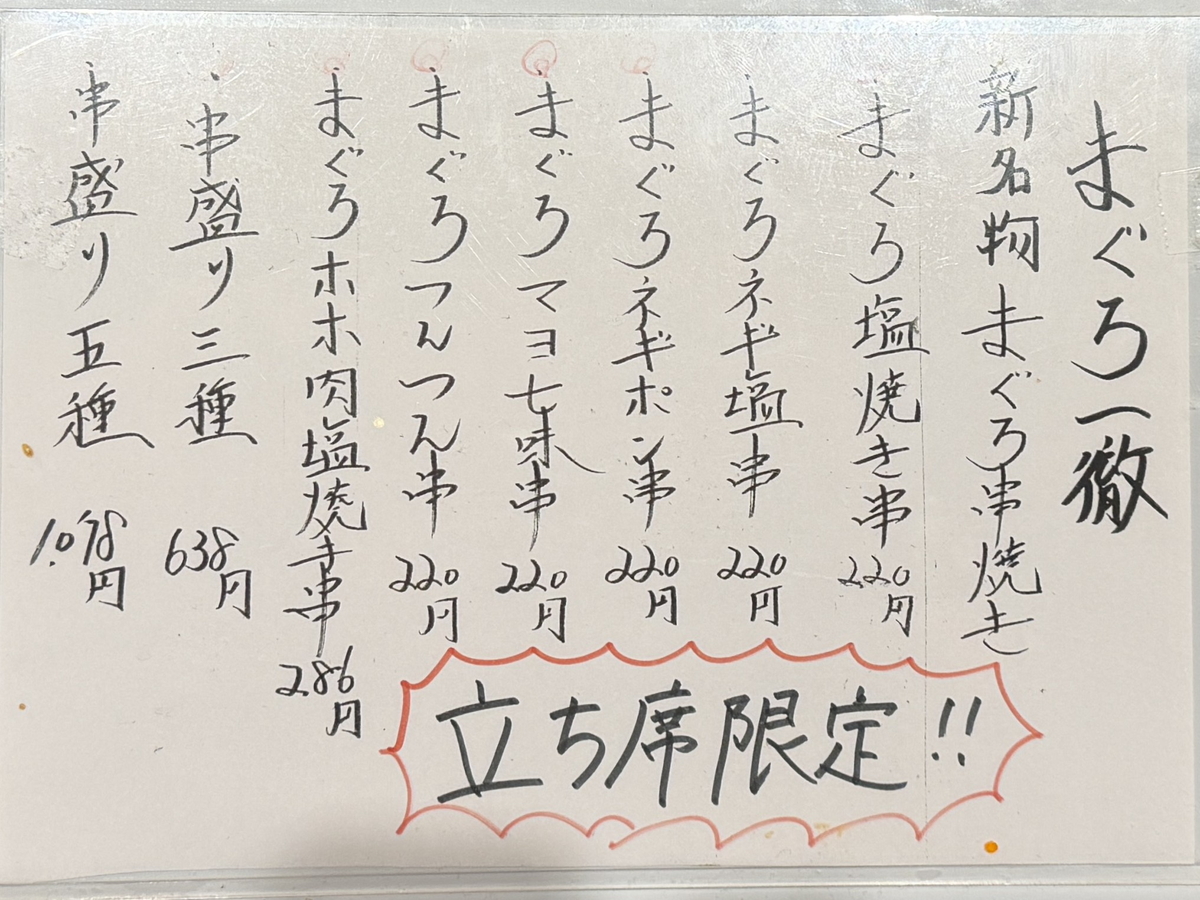 まぐろ一徹
新名物まぐろ串焼き
まぐろ塩焼き串 220円
まぐろネギ塩串 220円
まぐろネギポン串 220円
まぐろマヨ七味串 220円
まぐろつんつん串 220円
まぐろホホ肉塩焼き串 286円
串盛り三種 638円
串盛り五種 1.078円
立ち席限定!!